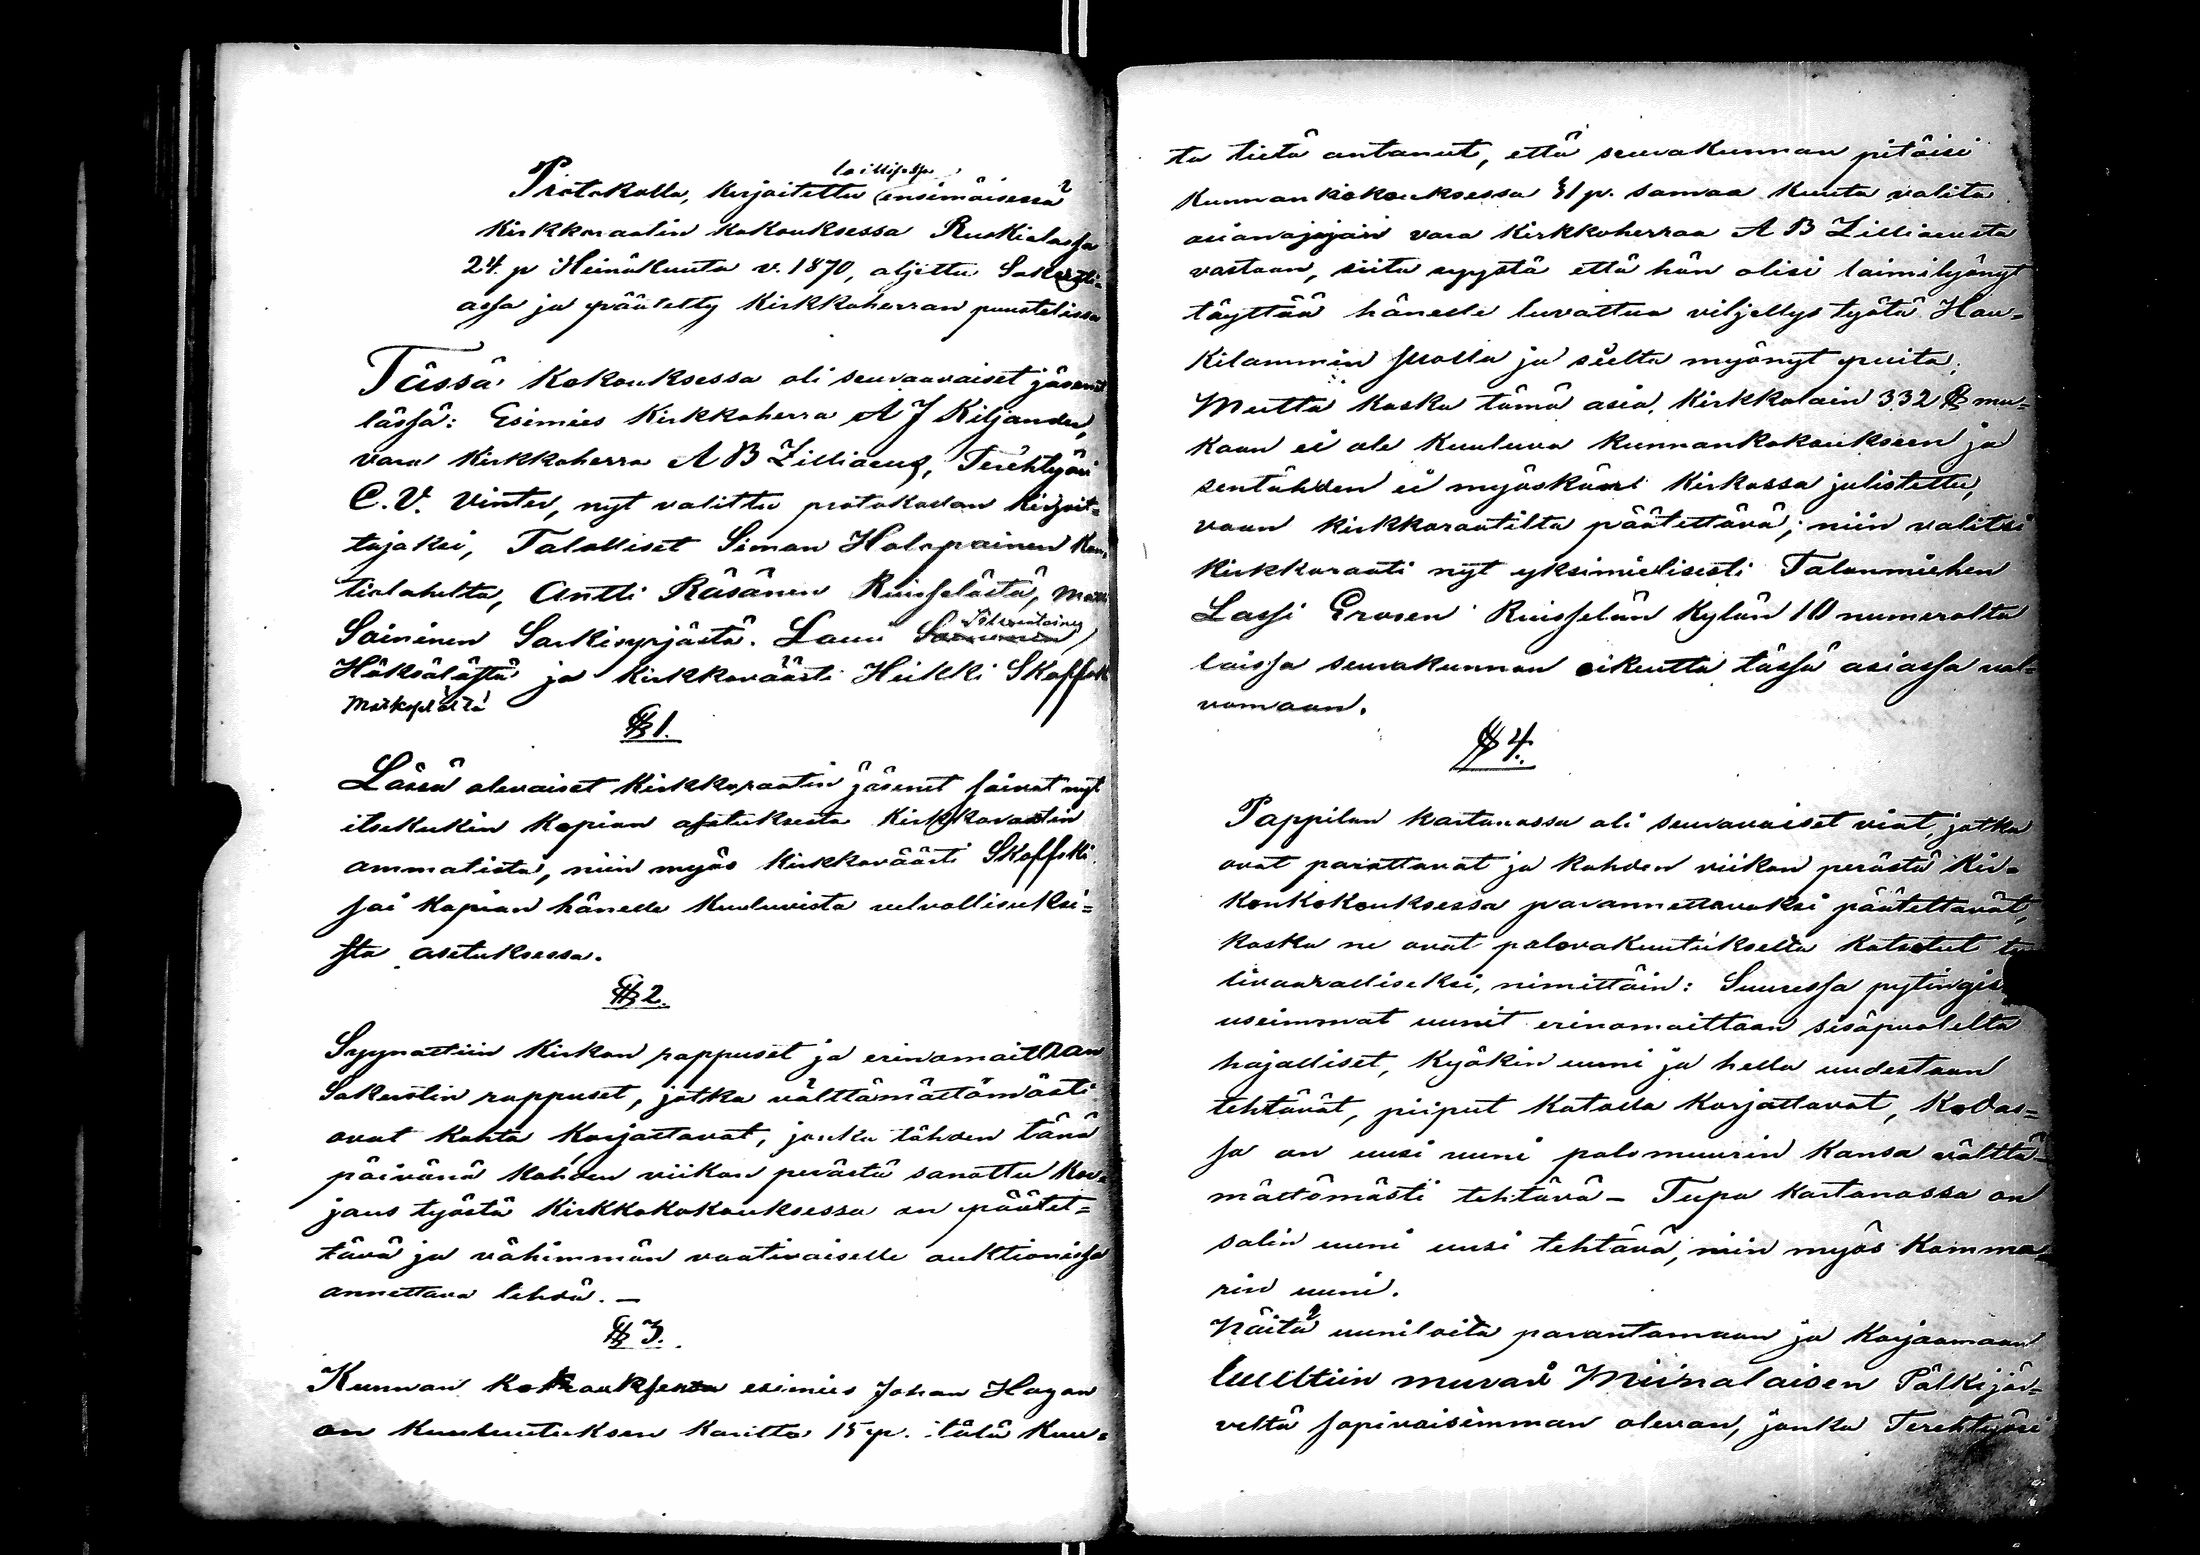 laillisessa
Protokolla, kirjoitettu ensimäisessä
Kirkkoraatin kokouksessa Ruskialassa
24. p Heinäkuuta v. 1870, aljettu Sakersti-
assa ja päätetty Kirkkoherran puustelissa
Tässä kokouksessa oli seuraavaiset jäsenet
lässä: Esimies Kirkkoherra A J Kiljander,
vara Kirkkoherra A B Zilliacus, Terehtyöri
C. V. Vinter, nyt valittu protokollan kirjoit-
tajaksi, Talolliset Simon Holopainen Kon-
tiolahelta, Antti Räsänen Ruisselästä, Matti
Soininen Särkisyrjästä. Lauri
Häksälästä ja Kirkkoväästi Heikki Skoffski
§ 1.
Läsnä olevaiset Kirkkoraatin jäsenet saivat nyt
itsekukin kopian asetuksesta Kirkkoraatin
ammatista, niin myös Kirkkoväästi Skoffski
sai kopian hänelle kuuluvista velvollisuksi-
sta asetuksessa.
§ 2.
Syynattiin Kirkon rappuset ja erinomaittaan
Sakerstin rappuset, jotka välttämättömästi
ovat kohta korjattavat, jonka tähden tänä
päivänä kahden viikon perästä sanottu kor-
jaus työstä Kirkkokokouksessa on päätet-
tävä ja vähimmän vaativaiselle auktionissa
annettava tehdä. -
§ 3.
Kunnan kokouksesta esimies Johan Hagan
on kuuluutuksen kautta 15 p. tätä kuu-
ta tietä antanut, että seurakunnan pitäisi
kunnankokouksessa 31 p. samaa kuuta valita
asianajajan vara Kirkkoherraa A B Zilliacusta
vastaan, siitä syystä että hän olisi laimilyönyt
täyttää hänelle luvattua viljellys työtä Hau-
kilammin suolla ja sieltä myönyt puita.
Mutta koska tämä asia, Kirkkolain 332 § mu-
kaan ei ole kuuluva kunnankokoukseen ja
sentähden ei myöskään Kirkossa julistettu,
vaan kirkkoraatilta päätettävä; niin valitsi
Kirkkoraati nyt yksimielisesti Talonmiehen
Lassi Erosen Ruisselän kylän 10 numerolta
laissa seurakunnan oikeutta tässä asiassa val-
vomaan.
§ 4.
Pappilan kartanossa oli seuravaiset viat, jotka
ovat parattavat ja kahden viikon perästä Kir-
konkokouksessa parannettavaksi päätettävät,
koska ne ovat palovakuutukselta katsotut tu-
livaaralliseksi, nimittäin: Suuressa pytingis
useimmat uunit erinomaittaan sisäpuolelta
hajalliset, Kyökin uuni ja hella uudestaan
tehtävät, piiput katolla korjattavat, Kodas-
sa on uusi uuni palomuurin kansa välttä-
mättömästi tehtävä - Tupa kartanossa on
salin uuni uusi tehtävä, niin myös Kamma-
rin uuni.
Näitä uuniloita parantamaan ja korjaamaan
luultiin murari Miinalaisen Pälkijär-
veltä sopivaisimman olevan, jonka Terehtyöri